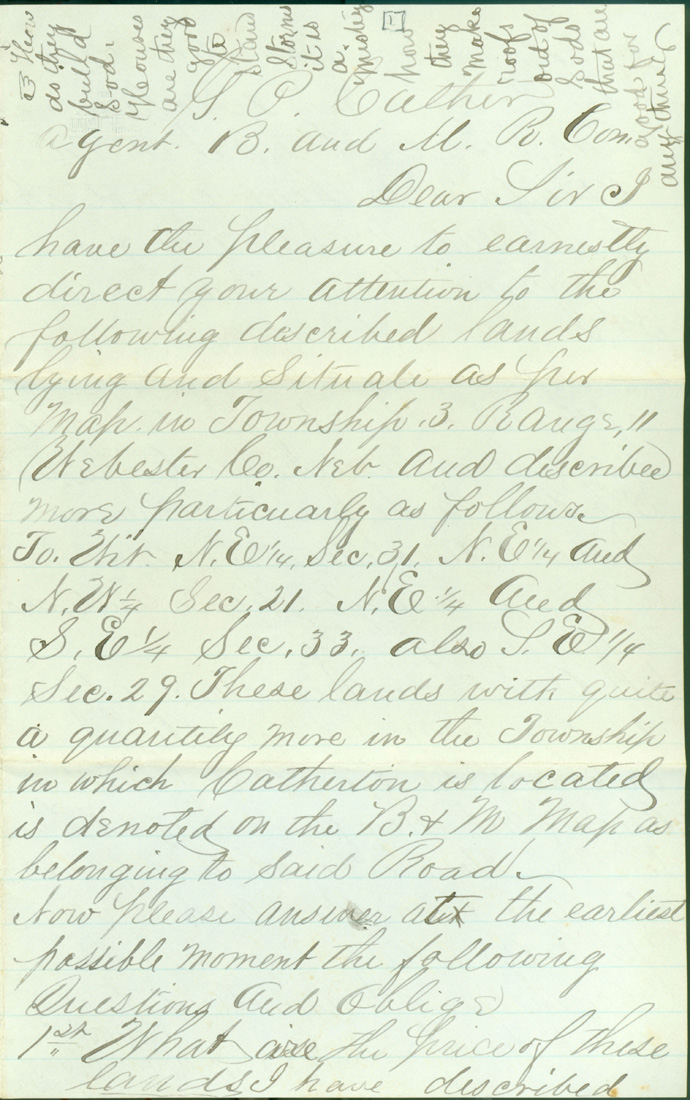 3 How
as they
build
Sod.
Houses
are they
good
to
stand
Storms
it is
a
mistery
how
they
make
roofs
out of
Sods
that are
good for
any thing
G. P. Cather
agent. B. and M. R. Com.
Dear Sir I
have the pleasure to earnestly
direct your attention to the
following described lands
lying and Situate as per
Map. in Township. 3. Range, 11
Webester Co. Neb. and described
more particuarly as follows.
To. Wit. N. E 1/4, Sec, 31. N. E 1/4 and
N. W 1/4 Sec, 21. N, E 1/4 and
S. E 1/4 Sec, 33. also S. E 1/4
Sec. 29. These lands with quite
a quantity more in the Township
in which Catherton is located
is denoted on the B. & M Map as
belonging to said Road.
Now please answer at the earliest
possible moment the following
Questions and oblige
1st What are the price of these
lands I have described